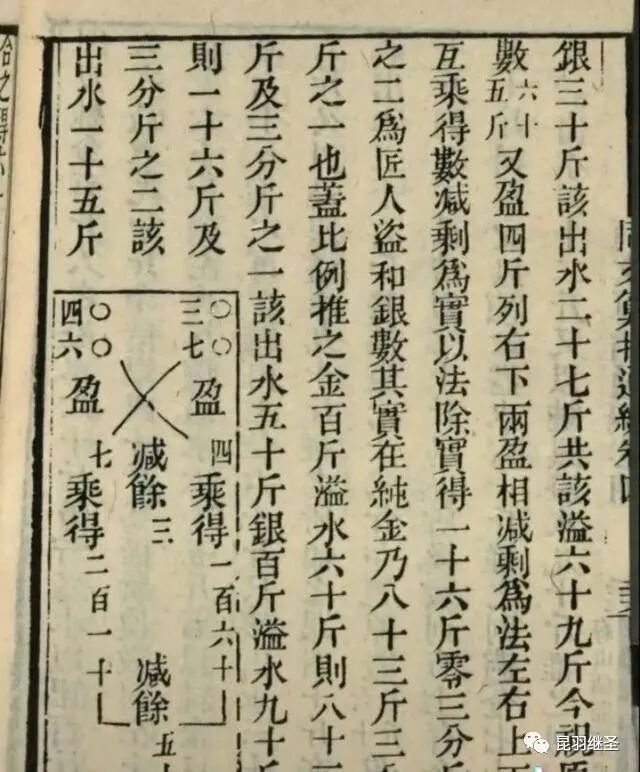 同文算指通編卷四
銀三十斤該出水二十七斤共該溢六十九斤今
數六十五斤又盈四斤列右下兩盈相減剩爲法左右上
互乘得數減剩爲實以法除實得一十六斤零三分斤
之二爲匠人盜和銀數其實在純金乃八十三斤三
斤之一也蓋比例推之金百斤溢水六十斤則八十三
斤及三分斤之一該出水五十斤銀百斤溢水九十斤
則一十六斤及
三分斤之二該
出水一十五斤
〇〇
三七
盈四乘得一百六十
減餘三
減餘五十
〇〇
四六
盈七乘得二百一十
昆羽继圣